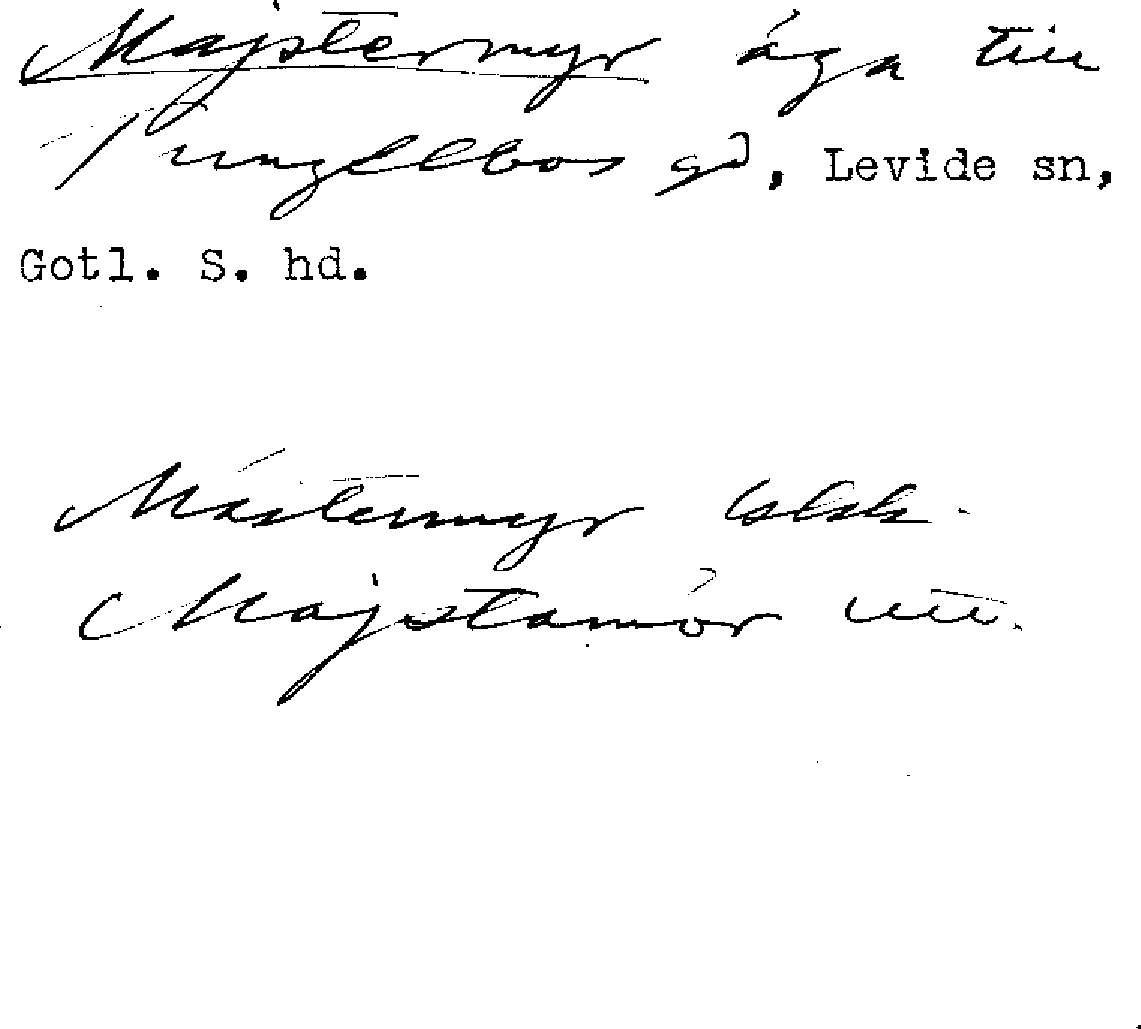 Majstermyr äga till
Tungelbos gd, Levide sn,
Gotl. S. hd.
Mästermyr
Majstamör utt.